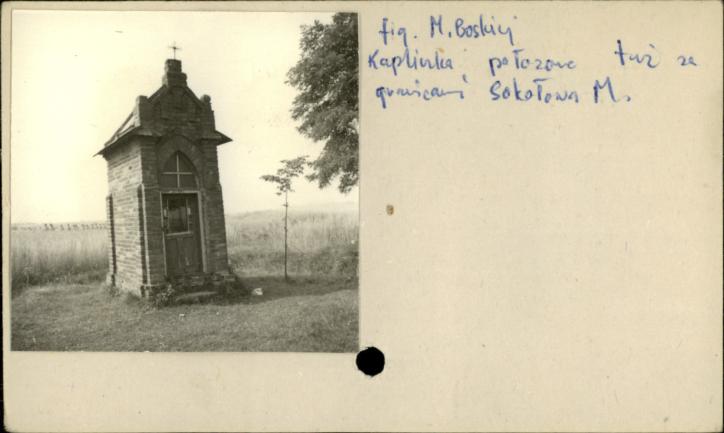 fig. M. Boskiej
Kapliczka położona tuż za
granicami Sokołowa M.